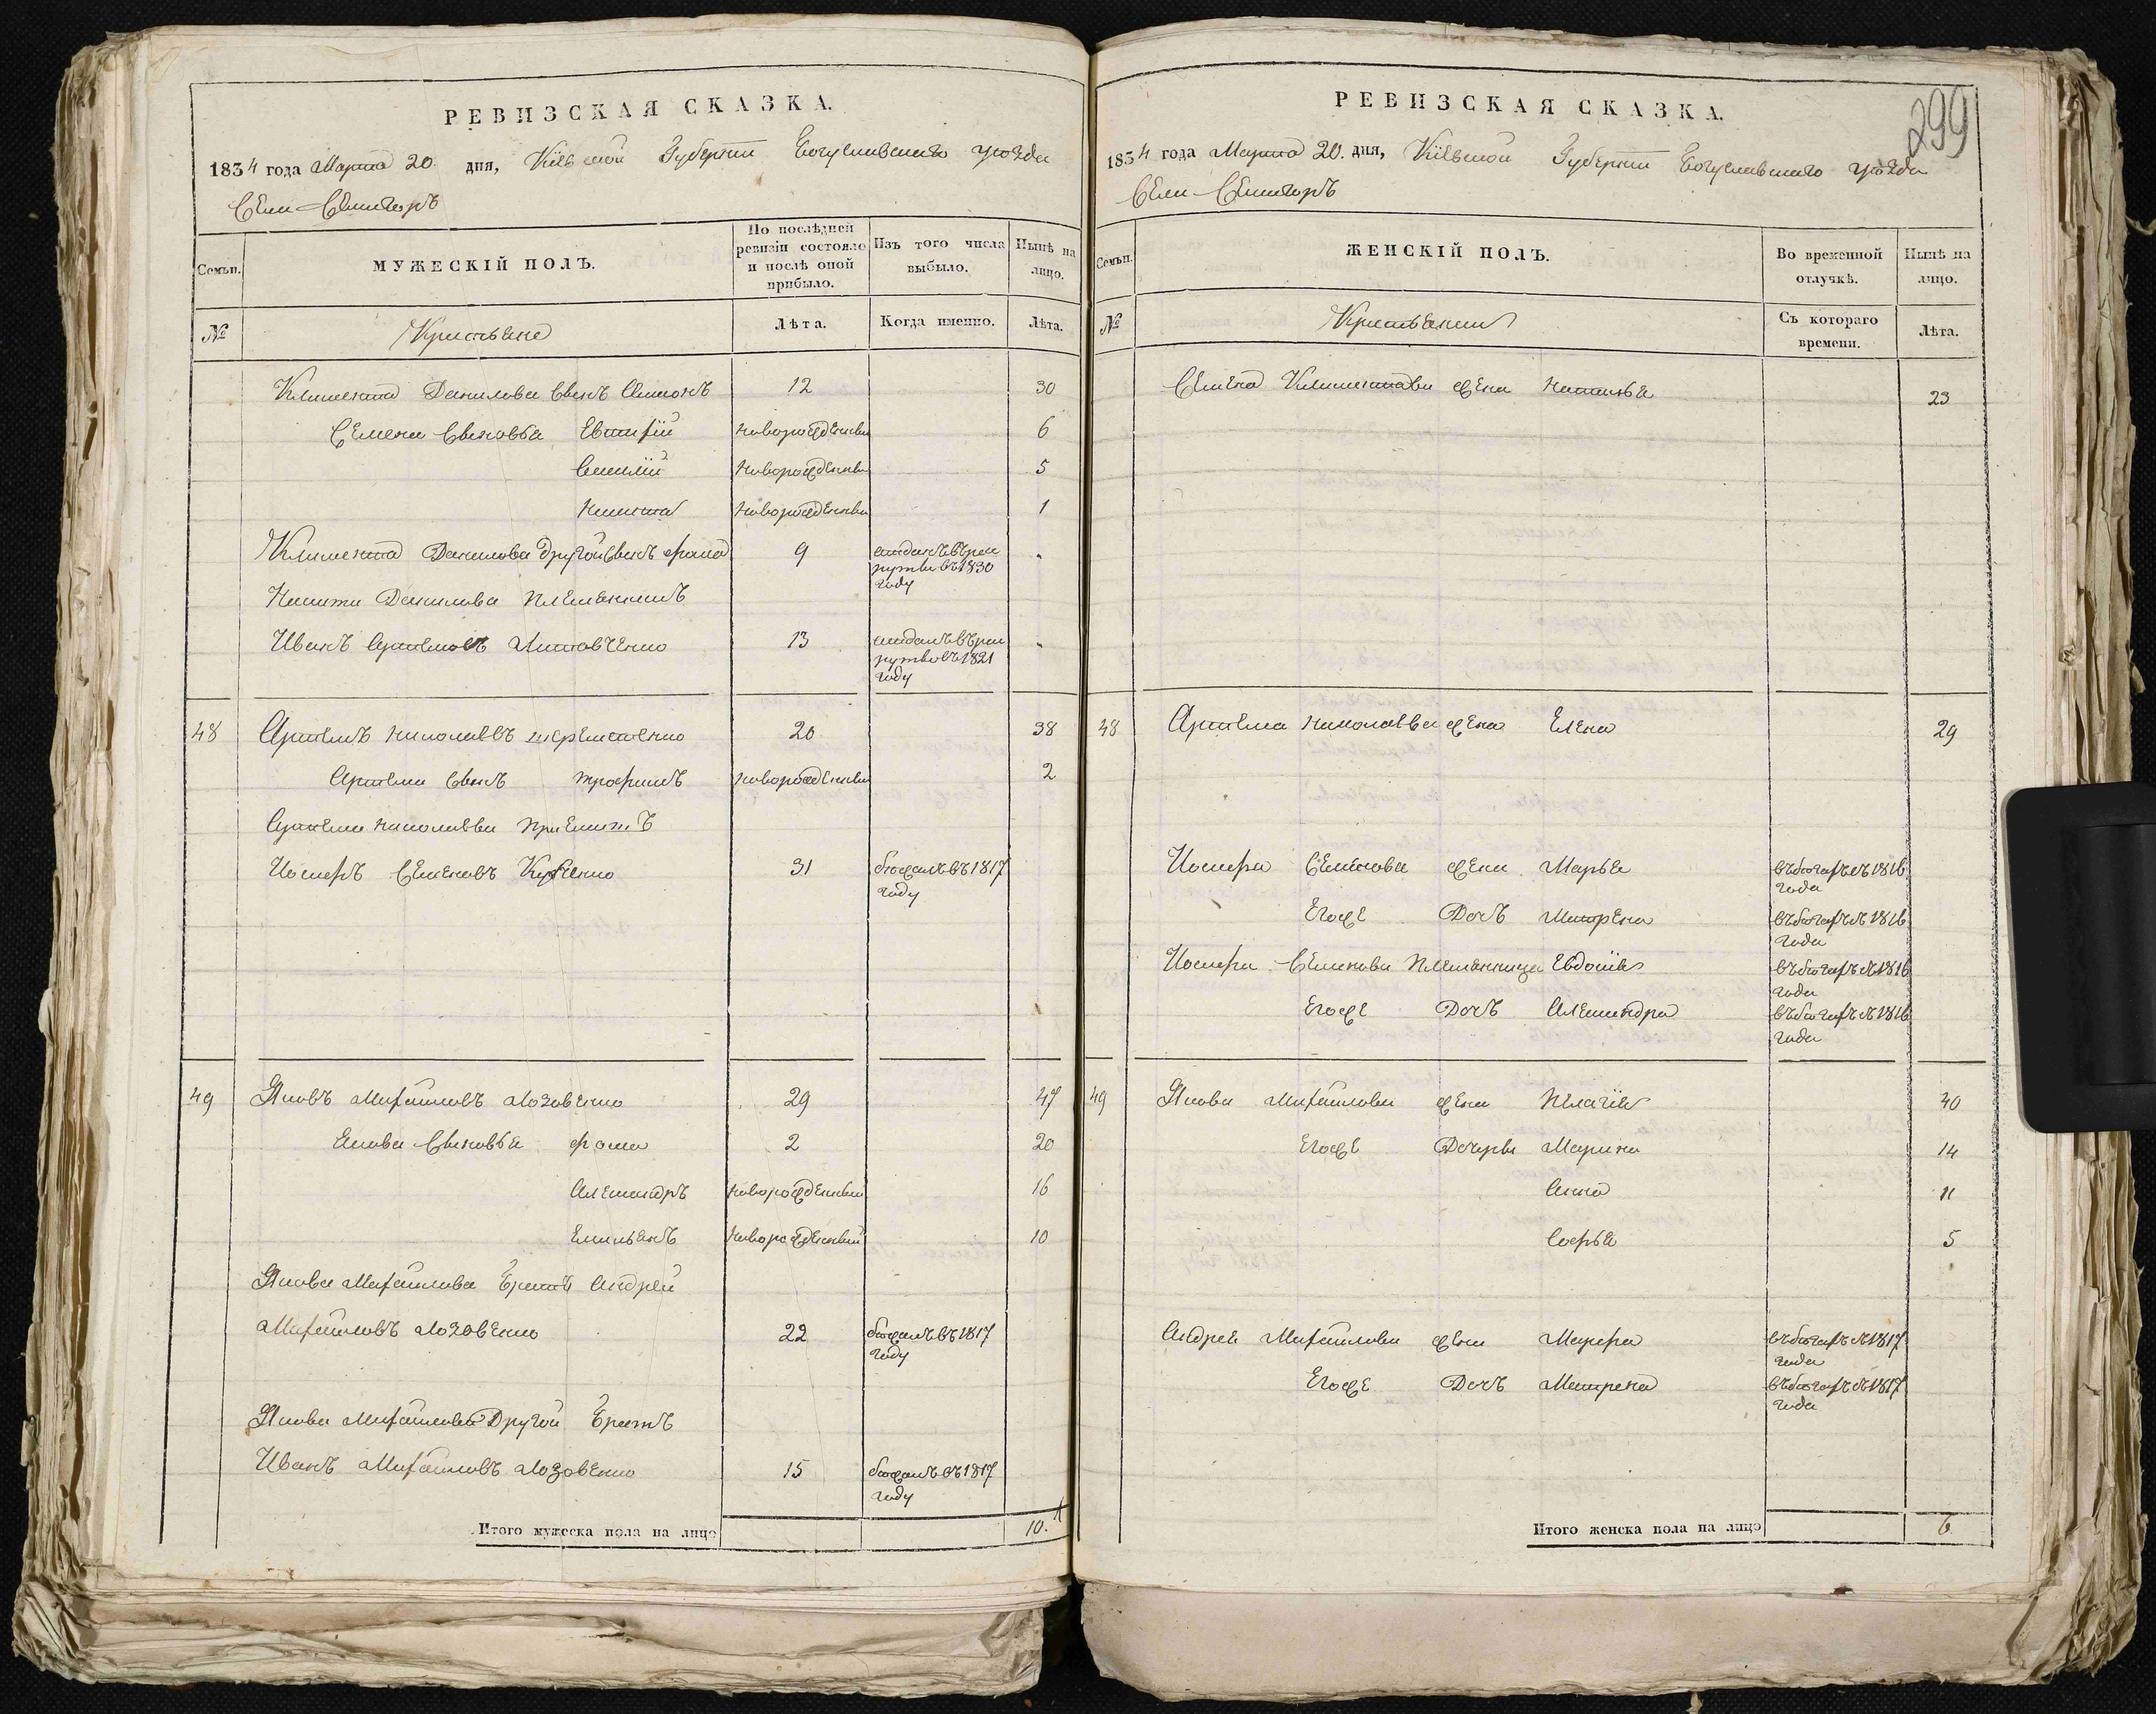 РЕВИЗСКАЯ СКАЗКА.
1834 года Марта 20. дня, Кіевской Губерніи Богуславскаго уѣзда
Села Семигоръ
Семьи.
МУЖЕСКІЙ ПОЛЪ.
По послѣдней ревизіи состояло и послѣ оной прибыло.
Изъ того числа выбыло.
Нынѣ на лицо.
№
Крестьяне
Лѣта.
Когда именно.
Лѣта.
Климента Данилова сынъ Симонъ 12 30
Семена сыновья Евтифій новорожденны 6
Василій новорожденны 5
Никита новорожденны 1
Климента Данилова другой сынъ фома 9 отданъ въ рек
руты въ 1830
году
Никиты Данилова племянникъ
Иванъ Артемовъ Литовченко 13 отданъ въ рек
руты въ 1821
году
48 Артемъ Николаевъ 20 38
Артема сынъ трофимъ новорожденны 2
Артема Николаева приемышъ
Иосифъ Семеновъ 31 бежалъ въ 1817
году
49 Яковъ Михайловъ Лозовенко 29 47
Якова сыновья фома 2 20
Александръ новорожденный 16
Емильянъ новорожденный 10
Якова Михайлова братъ Андрей
Михайловъ Лозовенко 22 бежалъ въ 1817
году
Якова Михайлова Другой братъ
Иванъ Михайловъ Лозовенко 15 бежалъ въ 1817
году
Итого мужеска пола на лицо 10.
РЕВИЗСКАЯ СКАЗКА.
299
1834 года Марта 20. дня, Кіевской Губерніи Богуславскаго уѣзда
Села Семигоръ
Семьи.
ЖЕНСКІЙ ПОЛЪ.
Во временной отлучкѣ.
Нынѣ на лицо.
№
Крестьянки
Съ котораго времени.
Лѣта.
Семена Климентова жена Наталья 23
48 Артема Николаева жена Елена 29
Иосифа Семенова жена Марья въ бегахъ съ 1816
года
Егоже Дочь Матрена въ бегахъ съ 1816
года
Иосифа Семенова племянница Евдокія въ бегахъ съ 1816
года
Егоже Дочь Александра въ бегахъ съ 1816
года
49 Якова Михайлова жена Пелагія 40
Егоже Дочери Марина 14
Анна 11
Софья 5
Андрея Михайлова жена Марфа въ бегахъ съ 1817
года
Егоже Дочь Матрена въ бегахъ съ 1817
года
Итого женска пола на лицо 6